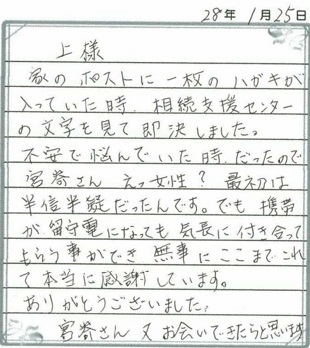 28年 1月25日
上様
家のポストに一枚のハガキが
入っていた時、相続支援センター
の文字を見て即決しました。
不安で悩んでいた時だったので
宮嵜さん えっ女性? 最初は
半信半疑だったんです。でも 携帯
が留守電になっても 気長に付き合って
もらう事ができ 無事に ここまでこれ
て本当に感謝しています。
ありがとうございました。
宮嵜さん 又お会いできたらと思います